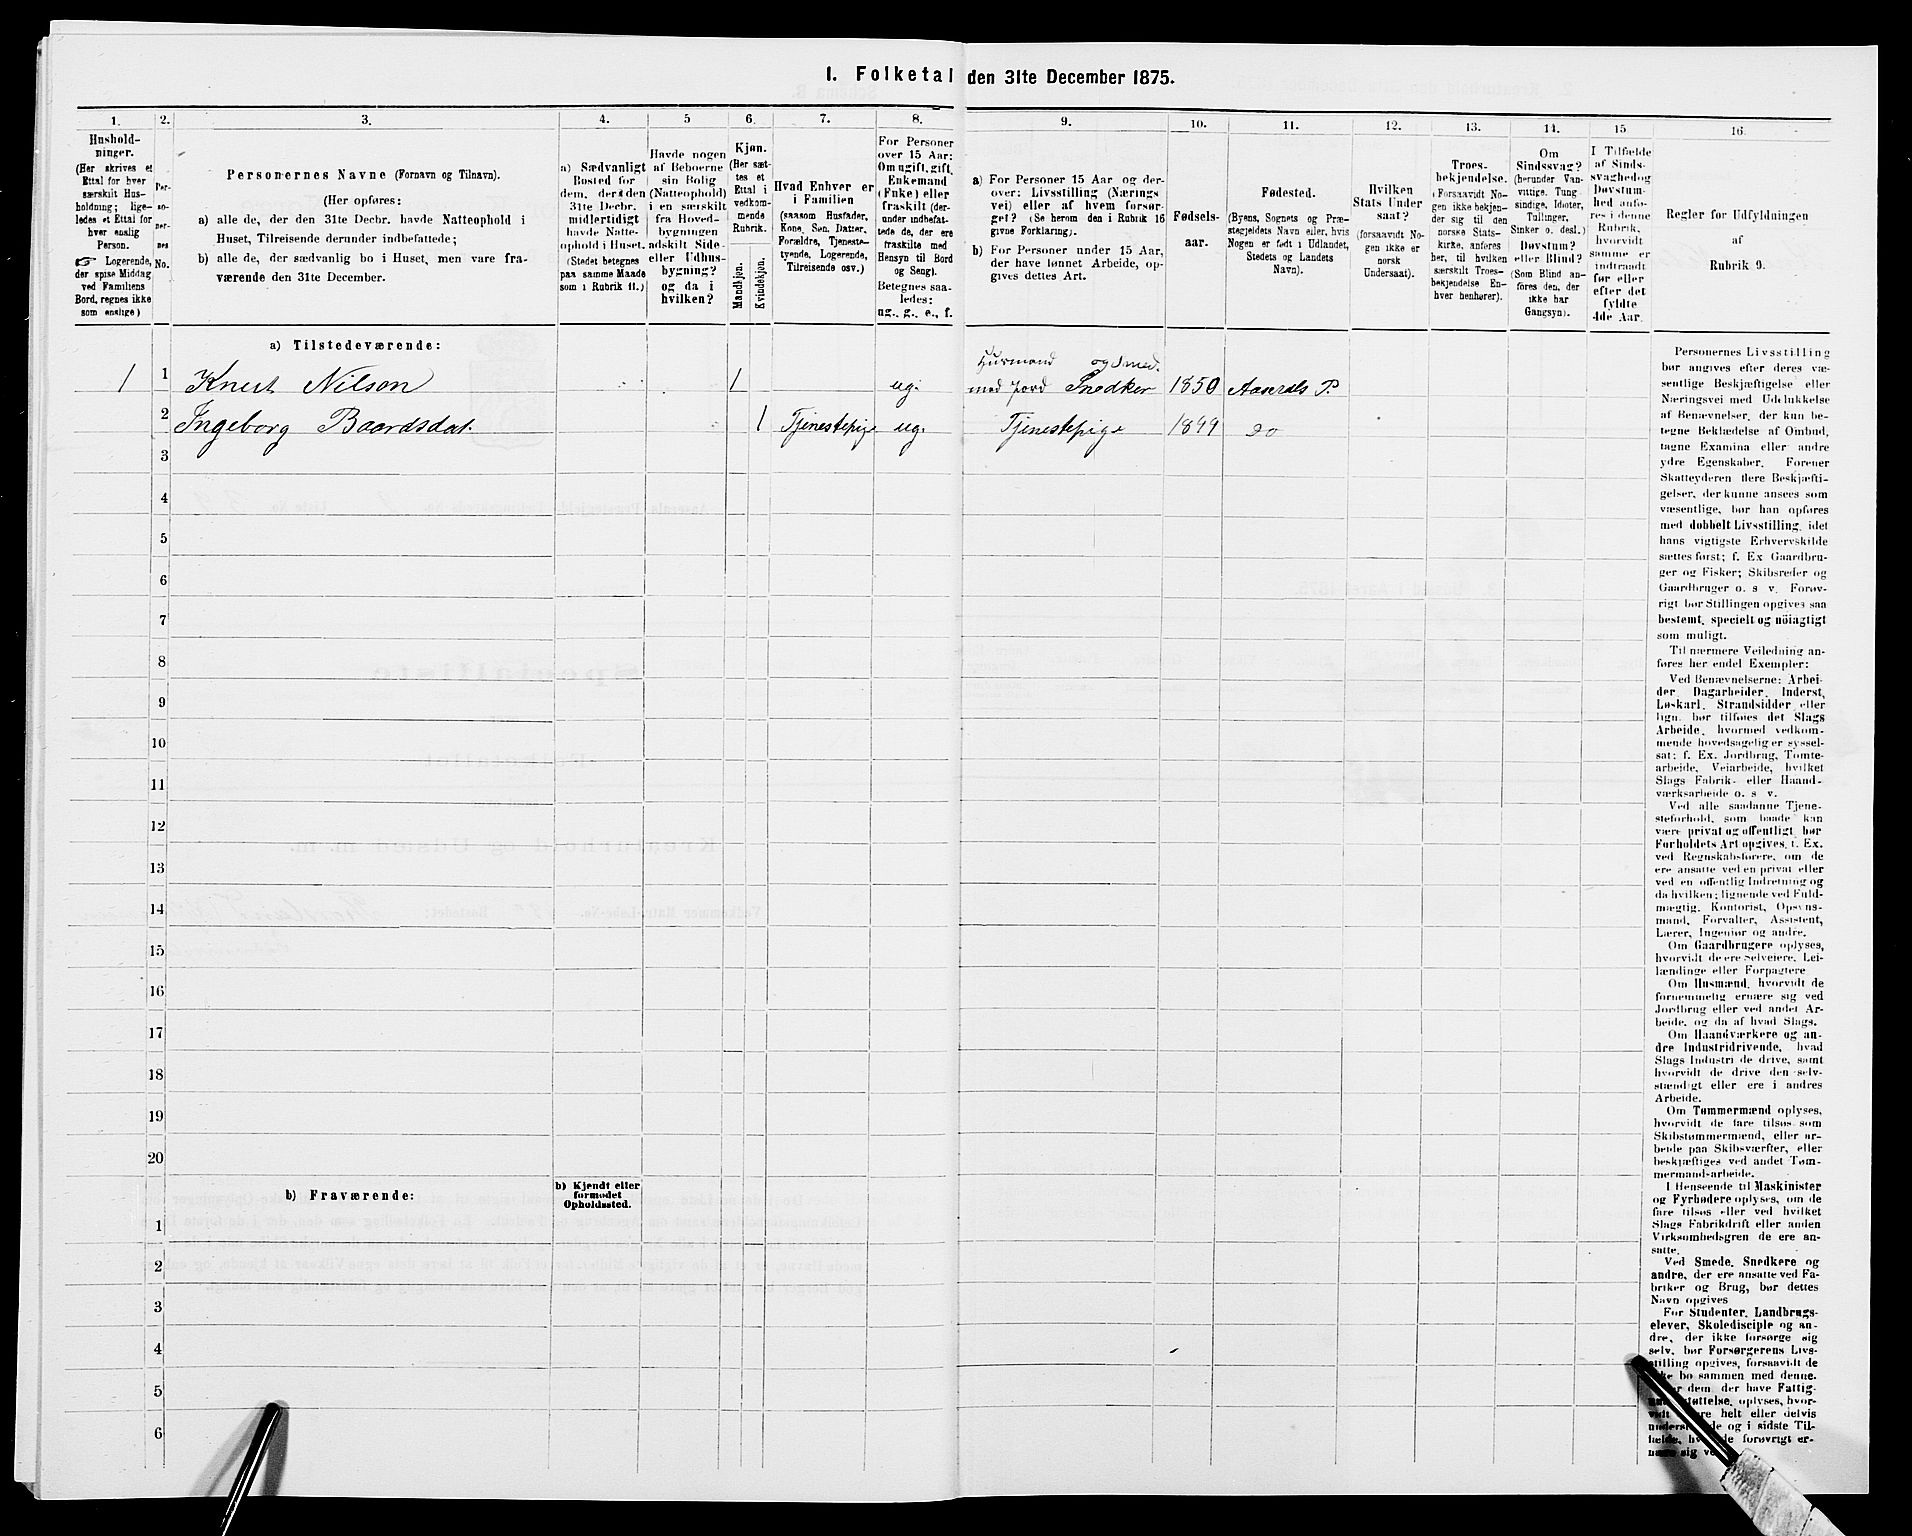 1. Folketal den 31te December 1875.
1.
Hushold-
ninger.
(Her skrives et
Ettal for hver
særskilt Hus-
holdning; lige-
ledes et Ettal for
hver enslig
Person.
☞ Logerende,
der spise Middag
ved Familiens
Bord, regnes ikke
som enslige)
2.
Per-
so-
ner-
nes
No.
3.
Personernes Navne (Fornavn og Tilnavn).
(Her opføres:
a) alle de, der den 31te Decbr. havde Natteophold i
Huset, Tilreisende derunder indbefattede;
b) alle de, der sædvanlig bo i Huset, men vare fra-
værende den 31te December.
4.
a) Sædvanligt
Bosted for
dem, der den
31te Decbr.
midlertidigt
havde Natte-
ophold i Huset.
(Stedet betegnes
paa samme Maade
som i Rubrik 11.)
5
Havde nogen
af Beboerne
sin Bolig
(Natteophold)
i en særskilt
fra Hoved-
bygningen
adskilt Side-
eller Udhus-
bygning?
og da i
hvilken?
6.
Kjøn.
(Her sæt-
tes et
Ettal i
vedkom-
mende
Rubrik.
Mandkjøn.
Kvindekjøn.
7.
Hvad Enhver er
i Familien
(saasom Husfader,
Kone, Søn, Datter,
Forældre, Tjeneste-
tyende, Logerende,
Tilreisende osv.)
8.
For Personer
over 15 Aar:
Om ugift, gift,
Enkemand
(Enke) eller
fraskilt (der-
under indbefat-
tede de, der ere
fraskilte med
Hensyn til Bord
og Seng).
Betegnes saa-
ledes:
ug., g., e., f.
9.
a) For Personer 15 Aar og der-
over: Livsstilling (Nærings
vei) eller af hvem forsør-
get? (Se herom den i Rubrik 16
givne Forklaring).
b) For Personer under 15 Aar,
der have lønnet Arbeide, op-
gives dettes Art.
10.
Fødsels-
aar.
11.
Fødested.
(Byens, Sognets og Præ-
stegjeldets Navn eller, hvis
Nogen er født i Udlandet,
Stedets og Landets
Navn).
12.
Hvilken
Stats Under
saat?
(forsaavidt No-
gen ikke er
norsk
Undersaat).
13.
Troes-
bekjendelse.
(Forsaavidt No-
gen ikke bekjen-
der sig til den
norske Stats-
kirke, anføres
her, til hvilken
særskilt Troes-
bekjendelse En-
hver henhører).
14.
Om
Sindssvag?
(herunder Van-
vittige, Tung
sindige, Idioter,
Tullinger,
Sinker o. desl.)
Døvstum?
eller Blind?
(Som Blind an-
føres den, der
ikke har
Gangsyn).
15
I Tilfælde
af Sinds-
svaghed og
Døvstum-
hed anfø-
res i denne
Rubrik,
hvorvidt
samme er
indtraadt
før eller
efter det
fyldte
4de Aar.
16.
Regler for Udfyldningen
af
Rubrik 9.
a) Tilstedeværende:
1 1 Knut Nilson 1 ug. Husmand og Smed.
med Jord Snedker 1850 Aaserals P.
2 Ingeborg Baardsdat. 1 Tjenestepige ug. Tjenestepige 1849 do
3
4
5
6
7
8
9
10
11
12
13
14
15
16
17
18
19
20
b) Fraværende:
b) Kjendt eller
formodet
Opholdssted.
1
2
3
4
5
6
Personernes Livsstilling
bør angives efter deres væ-
sentlige Beskjæftigelse eller
Næringsvei med Udelukkelse
af Benævnelser, der kun be-
tegne Beklædelse af Ombud,
tagne Examina eller andre
ydre Egenskaber. Forener
Skatteyderen flere Beskjæfti-
gelser, der kunne ansees som
væsentlige, bør han opføres
med dobbelt Livsstilling, idet
hans vigtigste Erhvervskilde
sættes først; f. Ex Gaardbru-
ger og Fisker; Skibsreder og
Gaardbruger o. s v. Forøv-
rigt bør Stillingen opgives saa
bestemt, specielt og nöiagtigt
som muligt.
Til nærmere Veiledning an-
føres her endel Exempler:
Ved Benævnelserne: Arbei-
der, Dagarbeider, Inderst,
Løskarl, Strandsidder eller
lign. bør tilføies det Slags
Arbeide, hvormed vedkom-
mende hovedsagelig er syssel-
sat; f. Ex. Jordbrug, Tomte-
arbeide, Veiarbeide, hvilket
Slags Fabrik- eller Haand-
værksarbeide o. s v.
Ved alle saadanne Tjene-
steforhold, som baade kan
være privat og offentligt, bør
Forholdets Art opgives, f. Ex.
ved Regnskabsførere, om de
ere ansatte ved en privat eller
ved en offentlig Indretning og
da hvilken; lignende ved Fuld-
mægtig, Kontorist, Opsyns-
mand, Forvalter, Assistent,
Lærer, Ingeniør og andre.
Om Gaardbrugere oplyses,
hvorvidt de ere Selveiere, Lei-
lændinge eller Forpagtere
Om Husmænd, hvorvidt de
fornemmelig ernære sig ved
Jordbrug eller ved andet Ar-
beide, og da af hvad Slags.
Om Haandværkere og an-
dre Industridrivende, hvad
Slags Industri de drive, samt
hvorvidt de drive den selv-
stændigt eller ere i andres
Arbeide.
Om Tømmermænd oplyses,
hvorvidt de fare tilsøs som
Skibstømmermænd, eller ar-
beide paa Skibsværfter, eller
beskjæftiges ved andet Tøm-
mermandsarbeide.
I Henseende til Maskinister
og Fyrbødere oplyses, om de
fare tilsøs eller ved hvilket
Slags Fabrikdrift eller anden
Virksomhedsgren de ere an-
satte.
Ved Smede, Snedkere og
andre, der ere ansatte ved Fa-
briker og Brug, bør dettes
Navn opgives
For Studenter, Landbrugs-
elever, Skoledisciple og an-
dre, der ikke forsørge sig
selv, bør Forsørgerens Livs-
stilling opgives, forsaavidt de
bo sammen med denne.
dem, der have Fattig-
oplyses, hvor-
helt eller delvis
og i sidste Til-
forøvrigt er-
sig